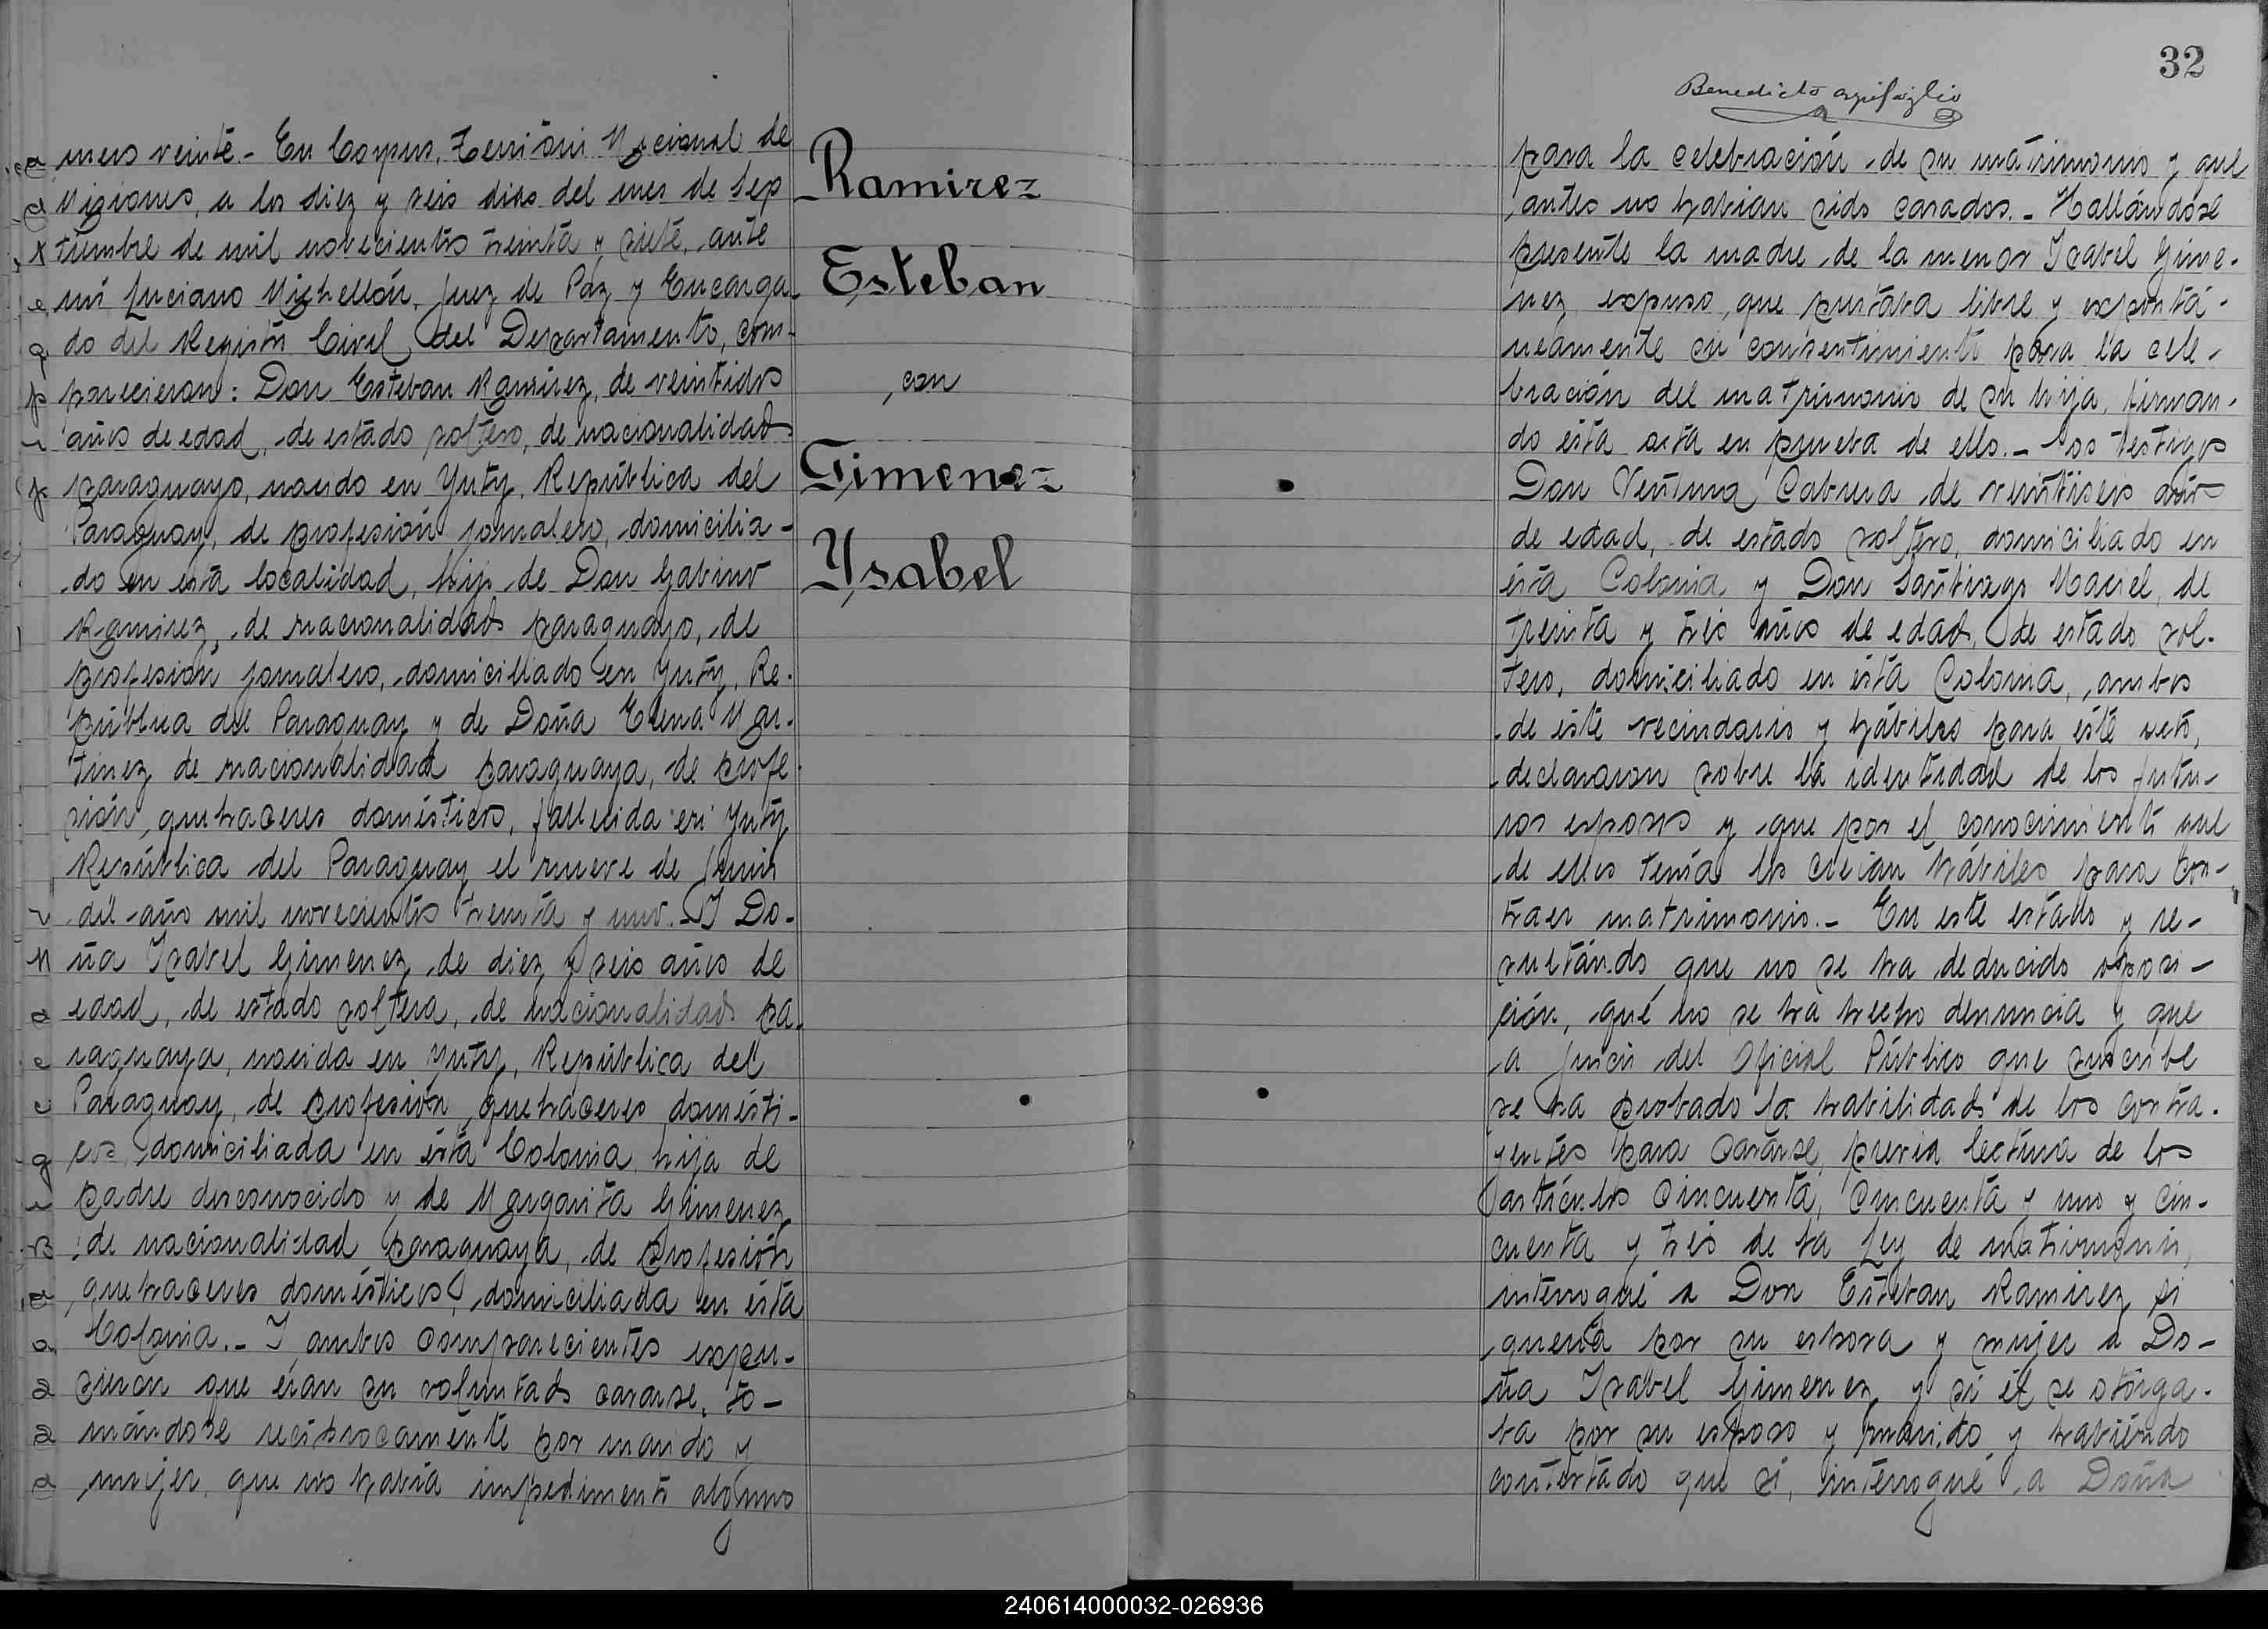 mero veinte.- En Corpus, Territorio Nacional de
Misiones, a los diez y seis dias del mes de Sep
tiembre de mil novecientos treinta y siete, ante
mi Luciano Michellón, Juez de Paz y Encarga-
do del Registro Civil del Departamento, com-
parecieron: Don Esteban Ramirez, de veintidos
años de edad, de estado soltero, de nacionalidad
paraguayo, nacido en Yuty, República del
Paraguay, de profesión jornalero, domicilia-
do en esta localidad, hijo de Don Gabino
Ramirez, de nacionalidad paraguayo, de
profesión jornalero, domiciliado en Yuty, Re-
pública del Paraguay y de Doña Elena Mar-
tinez de nacionalidad paraguaya, de profe
sión, quehaceres domésticos, fallecida en Yuty
República del Paraguay el nueve de Junio
del año mil novecientos treinta y uno.- Y Do-
ña Isabel Gimenez, de diez y seis años de
edad, de estado soltera, de nacionalidad pa-
raguaya, nacida en Yuty, República del
Paraguay, de profesión, quehaceres domésti-
cos, domiciliada en ésta Colonia, hija de
padre desconocido y de Margarita Gimenez
de nacionalidad paraguaya, de profesión
quehaceres domésticos, domiciliada en ésta
Colonia.- Y ambos comparecientes expu-
sieron que eran su voluntad casarse, to-
mándose recíprocamente por marido y
mujer, que no había impedimento alguno
Ramirez
Esteban
con
Gimenez
Ysabel
32
Benedicto
para la celebración de su matrimonio y que
antes no habian sido casados.- Hallándose
presente la madre de la menor Isabel Gime-
nez, expuso, que prestaba libre y expontá-
neamente su consentimiento para la cele-
bración del matrimonio de su hija, firman-
do esta acta en prueba de ello.- Los testigos
Don Ventura Cabrera, de veintiseis años
de edad, de estado soltero, domiciliado en
ésta Colonia y Don Santiago Maciel, de
treinta y tres años de edad, de estado sol-
tero, domiciliado en ésta Colonia, ambos
de éste vecindario y hábiles para éste acto,
declararon sobre la identidad de los futu-
ros esposos y que por el conocimiento que
de ellos tenía los creian hábiles para con-
traer matrimonio.- En este estado y re-
sultándo que no se ha deducido oposi-
ción, que no se ha hecho denuncia y que
a juicio del Oficial Público que suscribe
se ha probado la habilidad de los contra-
yentes para casarse, previa lectura de los
artículos cincuenta, cincuenta y uno y cin-
cuenta y tres de la Ley de matrimonio,
interrogué a Don Esteban Ramirez si
quería por su esposa y mujer a Do-
ña Isabel Gimenez, y si él se otorga-
ba por su esposo y marido, y habiéndo
contestado que si, interrogué a Doña
240614000032-026936